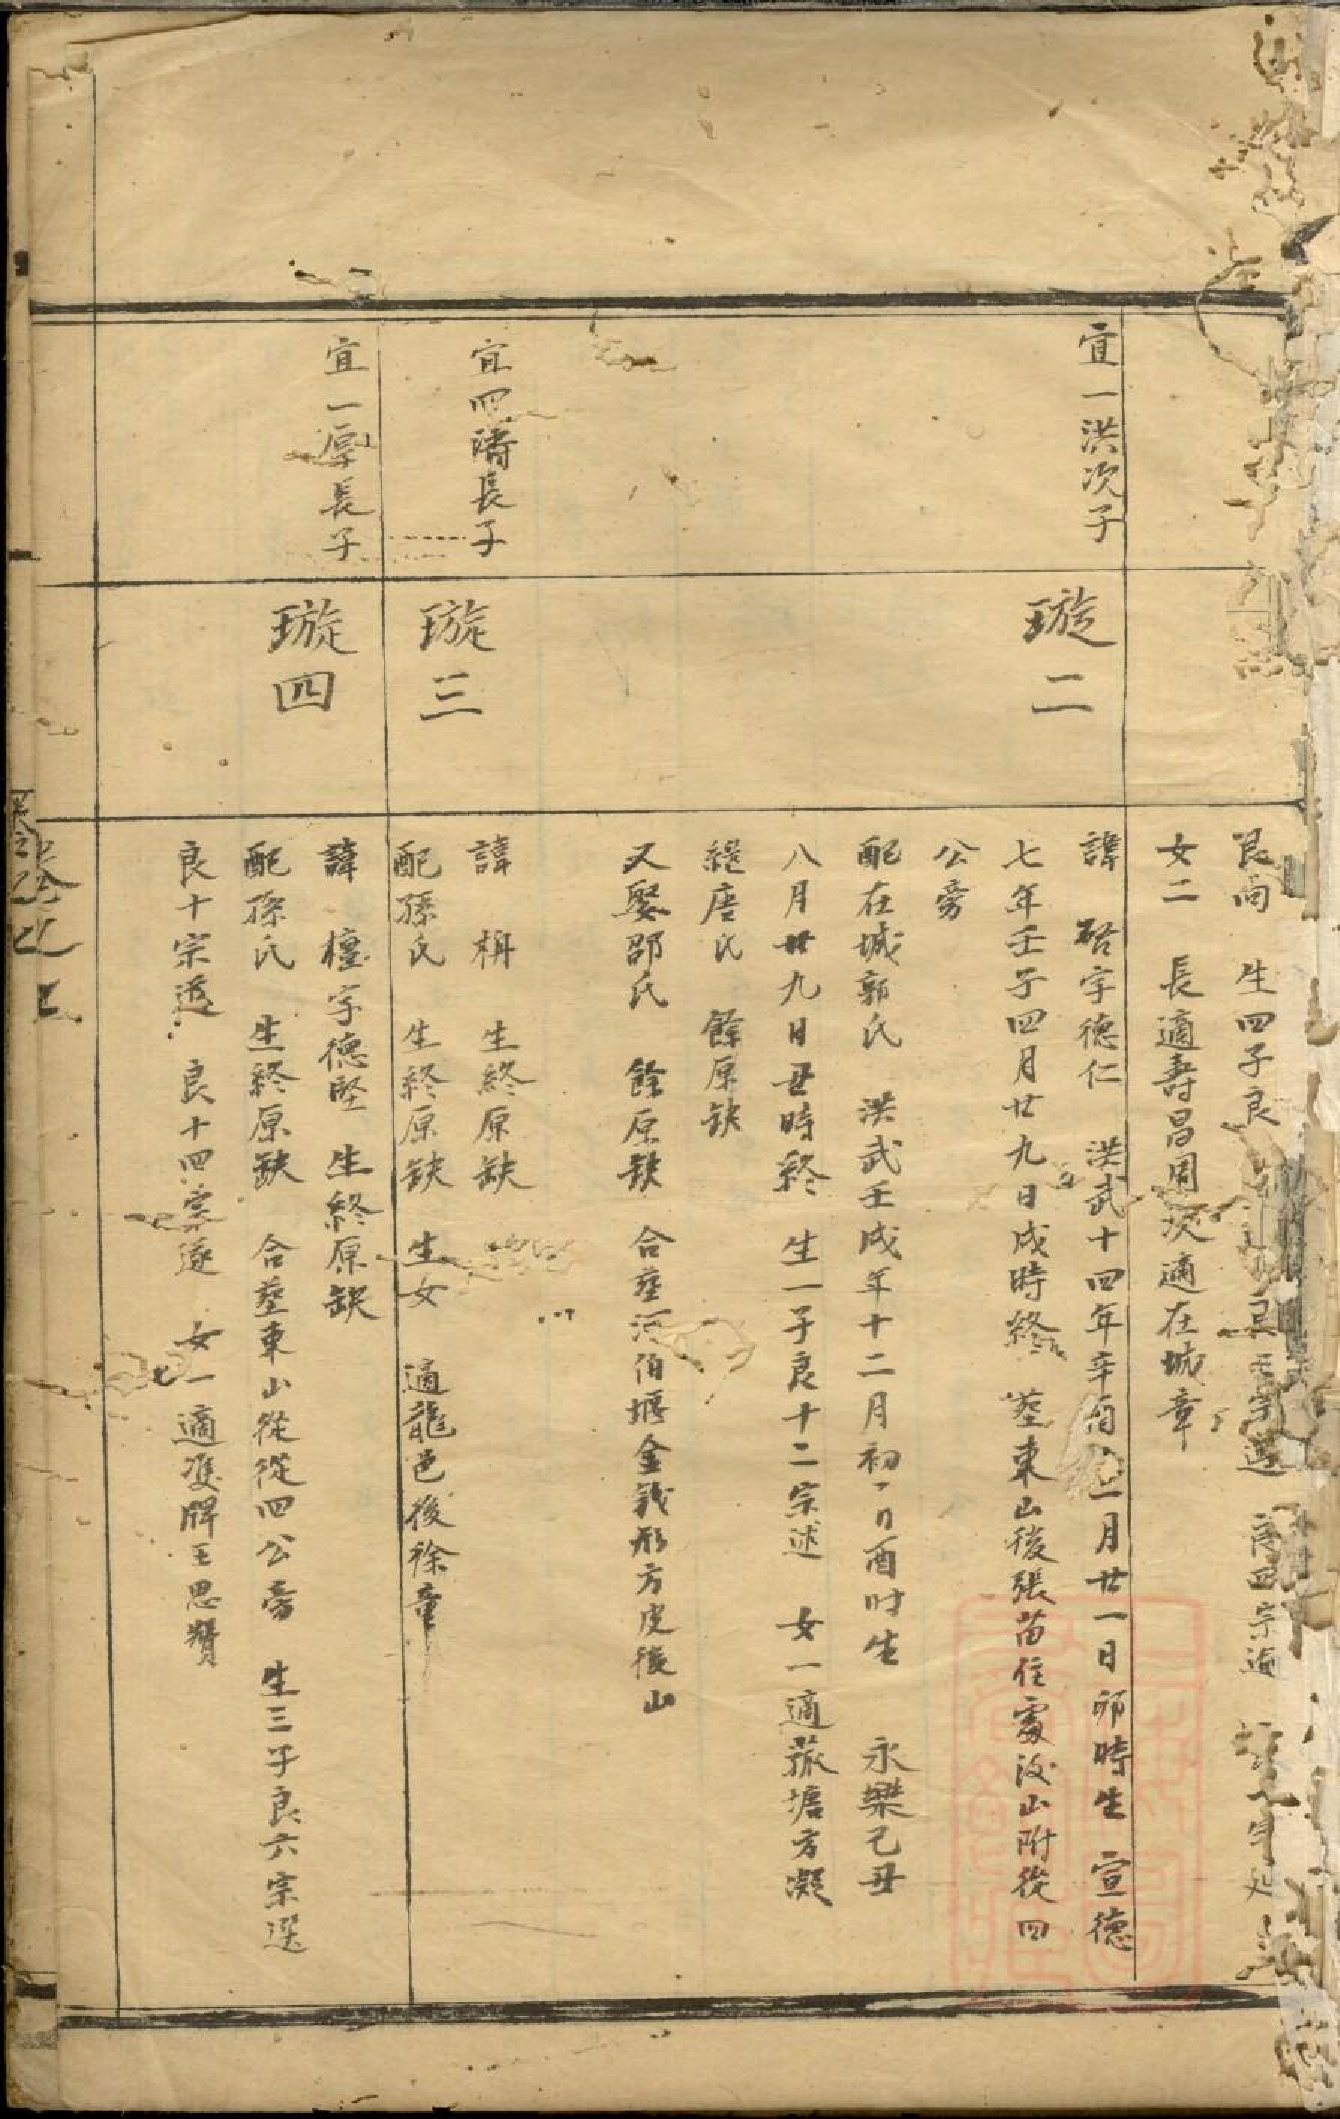 良
生四子良
女二　長適壽昌周次適在城章
宜一洪次子
璇二
諱　啓字德仁　洪武十四年辛酉　二月廿一日卯時生　宣德
七年壬子四月廿九日戌時終　塟東山後張苗住處後山附從四
公旁
配在城郭氏　洪武壬戌年十二月初一日酉时生　永樂己丑
八月廿九日丑時終　生一子良十二宗述　女一適菰塘方凝
繼唐氏　餘原缺
又娶邵氏　餘原缺　合塟河伯堰金我形方皮後山
宜四濤長子
璇三
諱　枏　生終原缺
配孫氏　生終原缺　生女　適龍邑後徐章
宜一厚長子
璇四
諱　檀字德堅　生終原缺
配孫氏　生終原缺　合塟東山從從四公旁　生三子良六宗選
良十宗適　良十四宗遂　女一適渡牌王思贊